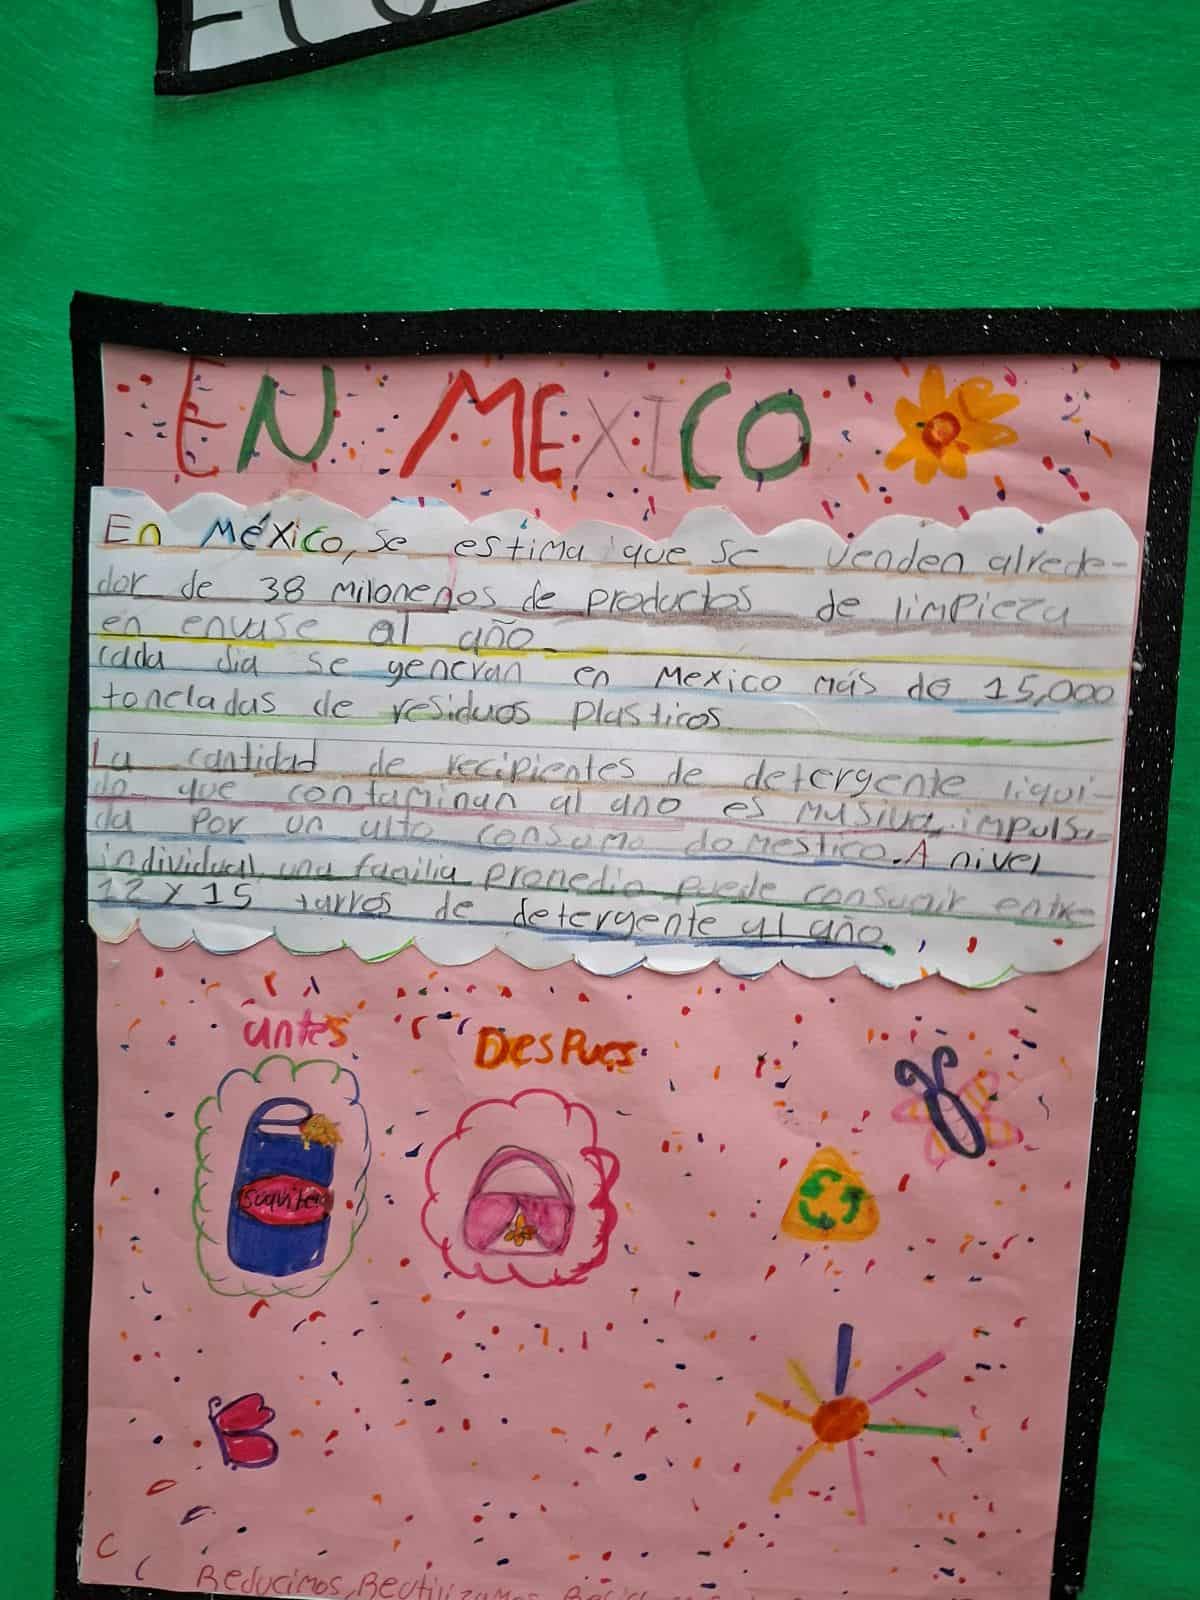 EN MEXICO
En México, se estima que se venden alrede-
dor de 38 milonenos de productos de limpieza
en envase al año.
cada dia se generan en Mexico más de 15,000
toneladas de residuos plasticos.
La cantidad de recipientes de detergente liqui-
do que contaminan al ano es masiva, impulsa
da por un alto consumo domestico. A nivel
individual una familia promedio puede consumir entre
12 y 15 tarros de detergente al año.
antes Despues
Suavitel
Reducimos, Reutilizamos